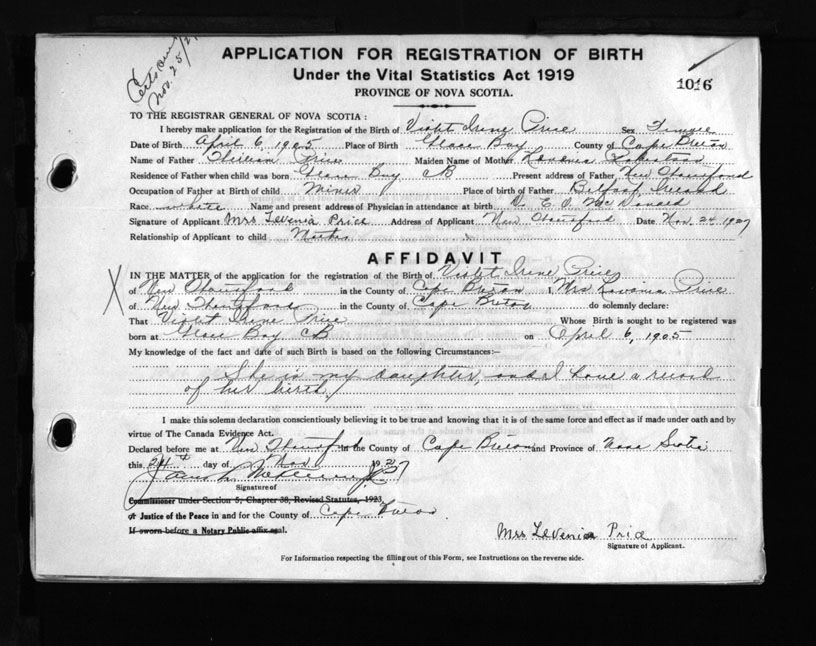 Nov. 25/27
APPLICATION FOR REGISTRATION OF BIRTH
Under the Vital Statistics Act 1919
PROVINCE OF NOVA SCOTIA.
1016
TO THE REGISTRAR GENERAL OF NOVA SCOTIA :
I hereby make application for the Registration of the Birth of Violet Irene Price Sex Female
Date of Birth April 6, 1905 Place of Birth Glace Bay County of Cape Breton
Name of Father William Price Maiden Name of Mother
Residence of Father when child was born Glace Bay CB Present address of Father New
Occupation of Father at Birth of child Miner Place of birth of Father Belfast Ireland
Race White Name and present address of Physician in attendance at birth Dr.
Signature of Applicant Mrs Levenia Price Address of Applicant New Date Nov. 24 1927
Relationship of Applicant to child Mother
AFFIDAVIT
IN THE MATTER of the application for the registration of the Birth of Violet Irene Price
of New in the County of Cape Breton I, Mrs Price
of New in the County of Cape Breton do solemnly declare:
That Violet Irene Price Whose Birth is sought to be registered was
born at Glace Bay CB on April 6, 1905
My knowledge of the fact and date of such Birth is based on the following Circumstances:—
She is my daughter, and I have a record
of her birth.
I make this solemn declaration conscientiously believing it to be true and knowing that it is of the same force and effect as if made under oath and by
virtue of The Canada Evidence Act.
Declared before me at New in the County of Cape Breton and Province of Nova Scotia
this 24th day of Nov 1927
Signature of
Commissioner under Section 5, Chapter 38, Revised Statutes, 1923
or Justice of the Peace in and for the County of Cape Breton
If sworn before a Notary Public affix seal.
Mrs Levenia Price
Signature of Applicant.
For Information respecting the filling out of this Form, see Instructions on the reverse side.